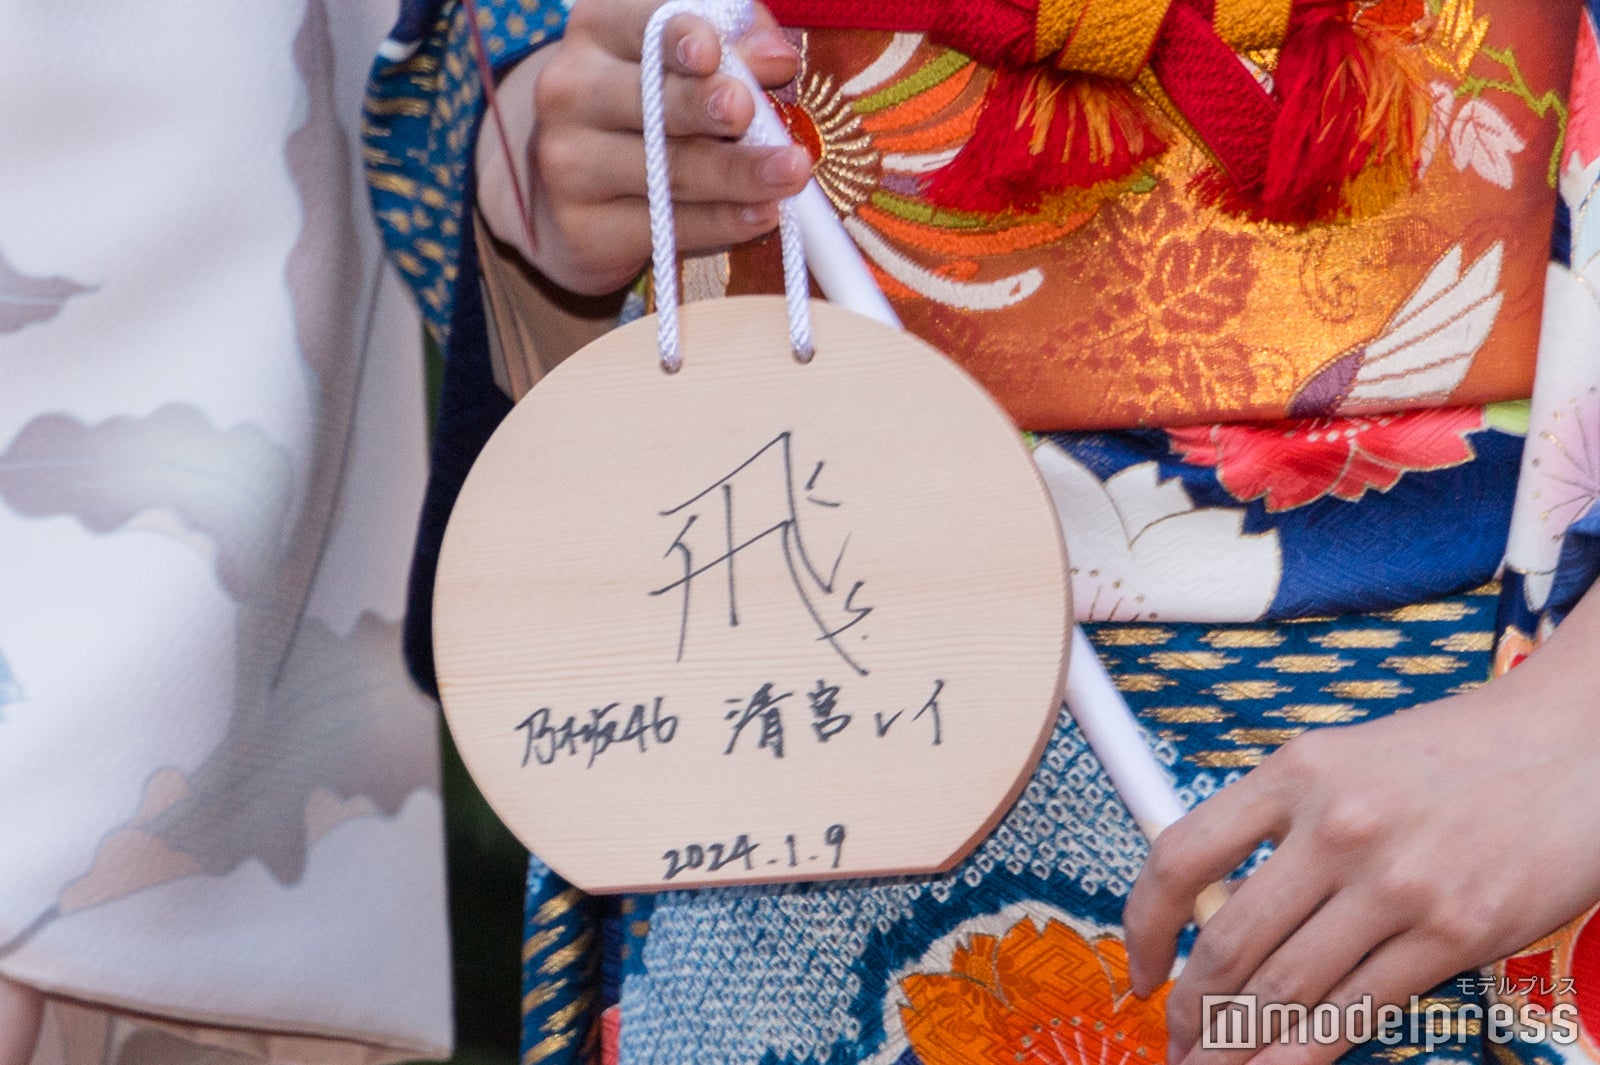 飛
乃木坂46 清宮レイ
2024.1.9
モデルプレス
modelpress